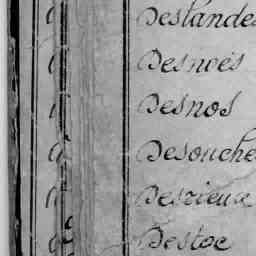 Deslandes
Desnoës
Desnos
Desouche
Desrieux
Destoc